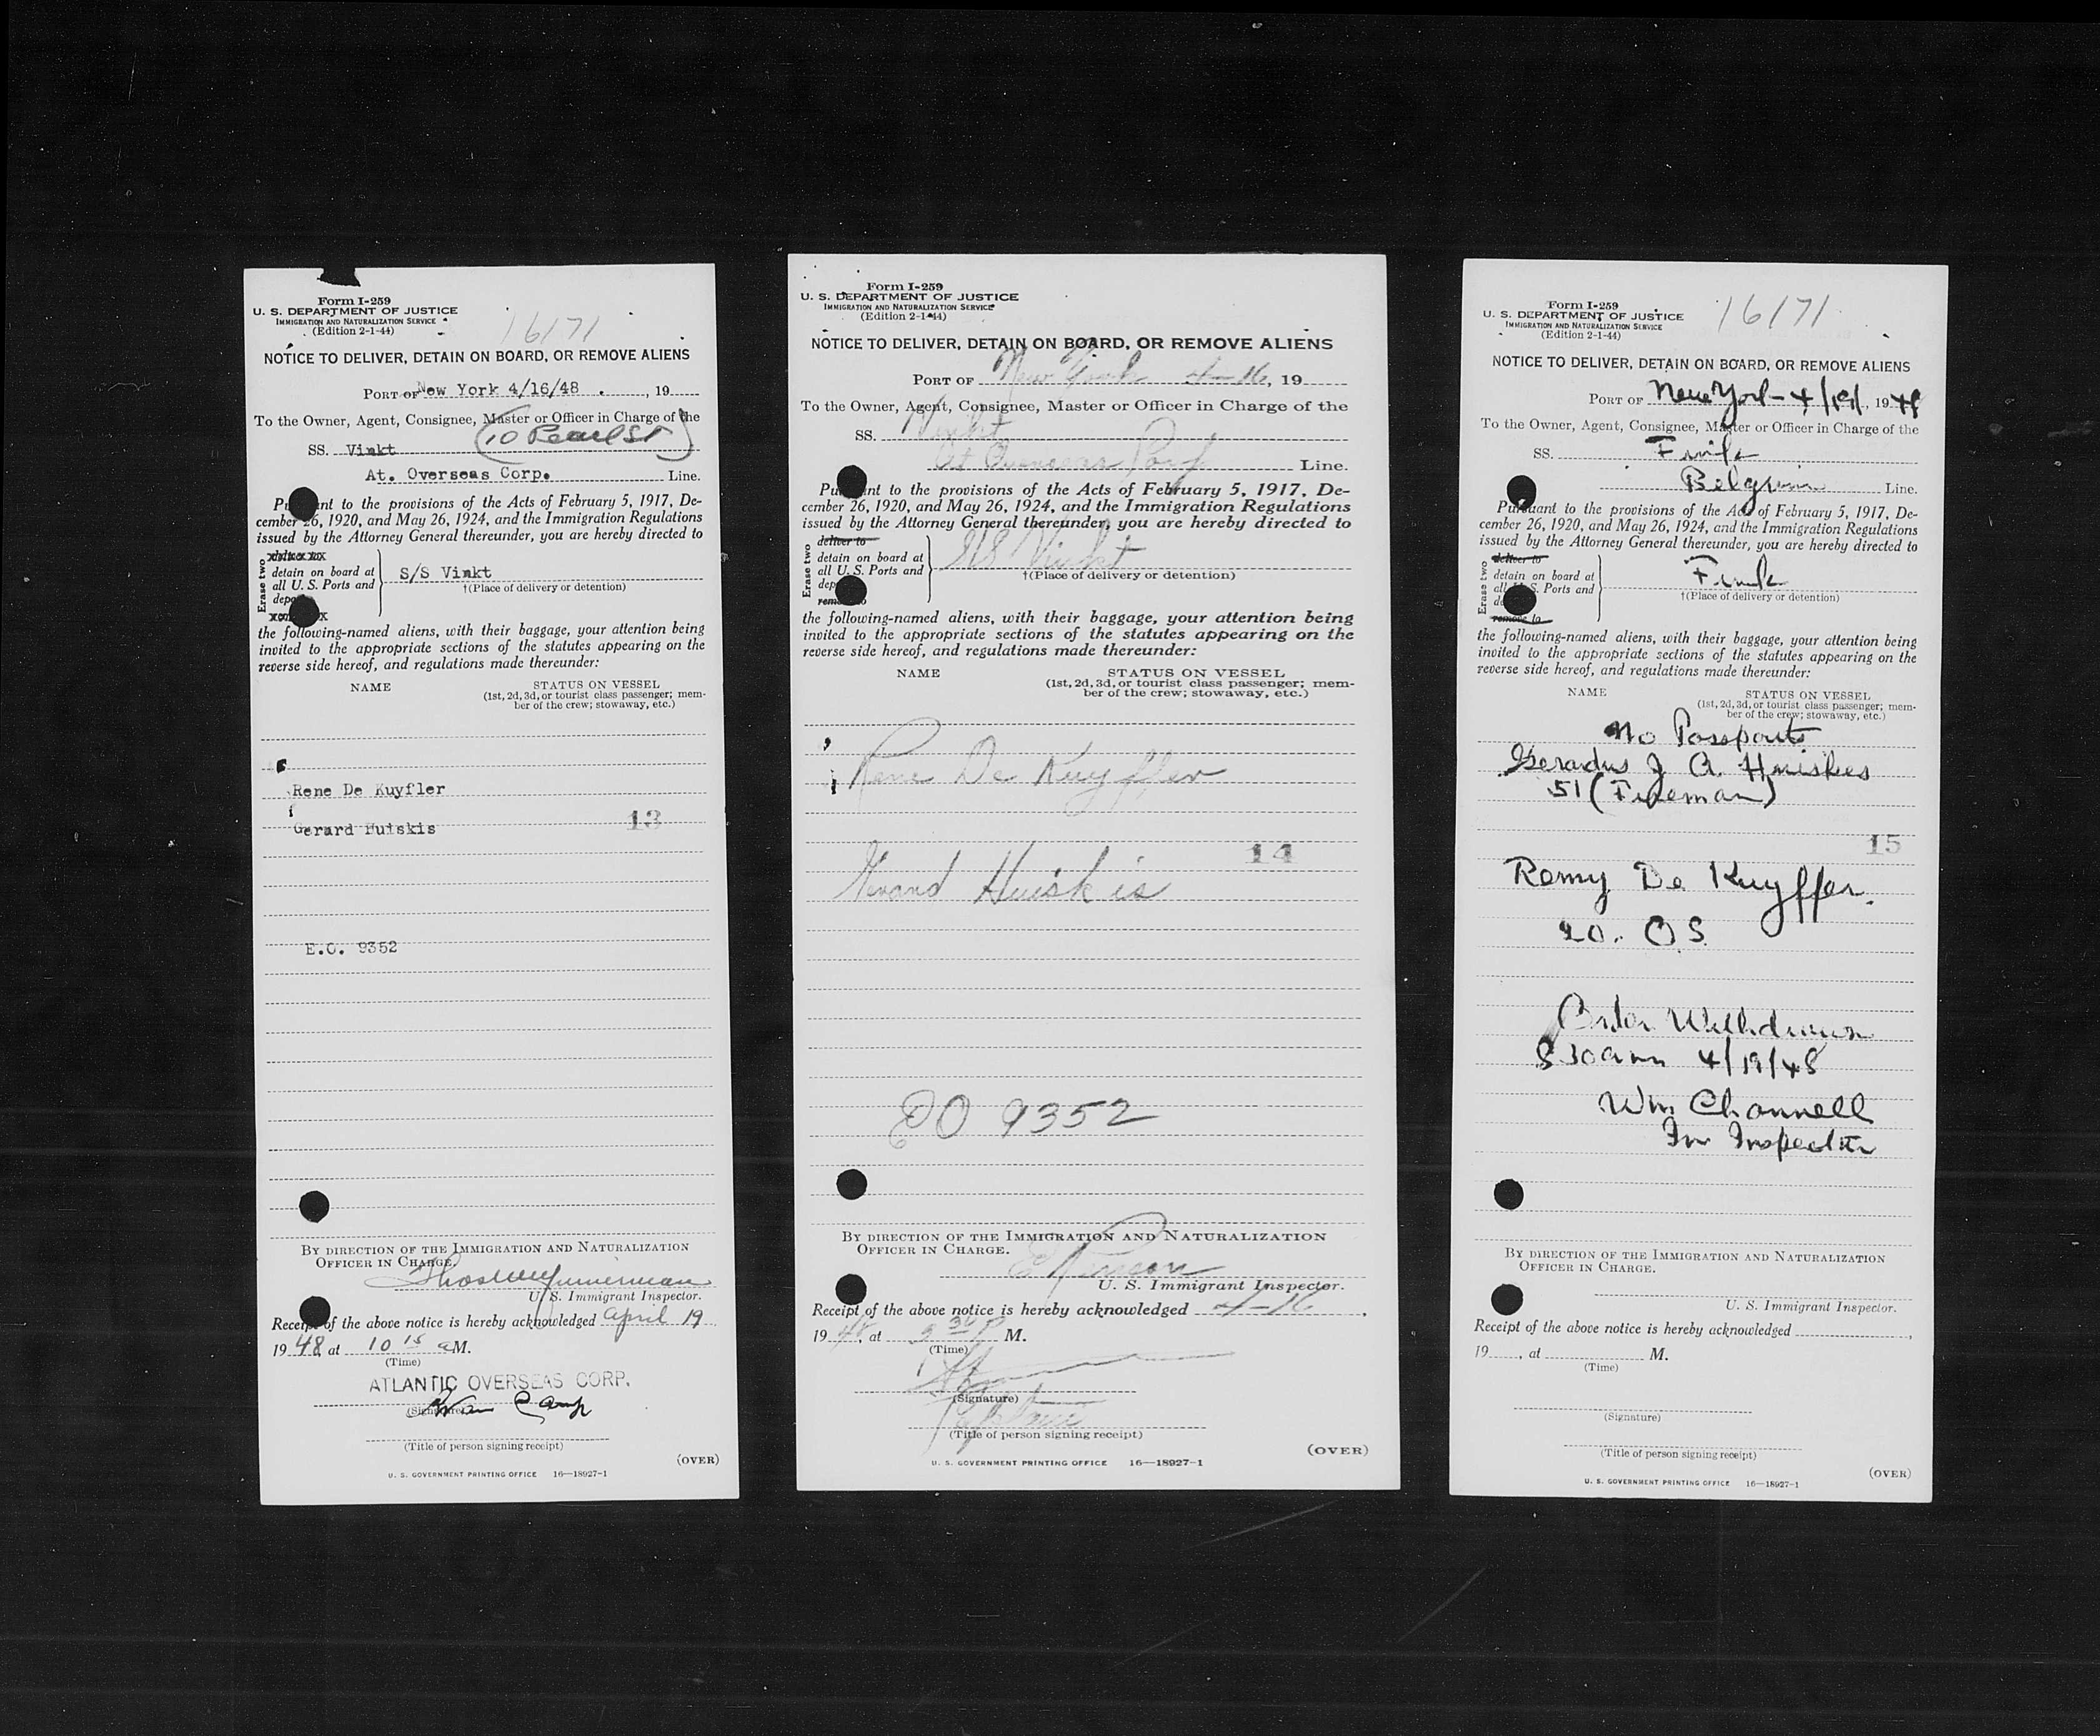 Form I-259
U. S. DEPARTMENT OF JUSTICE
IMMIGRATION AND NATURALIZATION SERVICE
(Edition 2-1-44)
16171
NOTICE TO DELIVER, DETAIN ON BOARD, OR REMOVE ALIENS
PORT OF New York 4/16/48 , 19
To the Owner, Agent, Consignee, Master or Officer in Charge of the
(10 Pearl St)
SS. Vinkt
At. Overseas Corp. Line.
Pursuant to the provisions of the Acts of February 5, 1917, De-
cember 26, 1920, and May 26, 1924, and the Immigration Regulations
issued by the Attorney General thereunder, you are hereby directed to
Erase two
detain on board at
all U. S. Ports and
S/S Vinkt
†(Place of delivery or detention)
the following-named aliens, with their baggage, your attention being
invited to the appropriate sections of the statutes appearing on the
reverse side hereof, and regulations made thereunder:
NAME STATUS ON VESSEL
(1st, 2d, 3d, or tourist class passenger; mem-
ber of the crew; stowaway, etc.)
Rene De Kuyfler
13
Gerard Huiskis
E.O. 9352
BY DIRECTION OF THE IMMIGRATION AND NATURALIZATION
OFFICER IN CHARGE.
U. S. Immigrant Inspector.
Receipt of the above notice is hereby acknowledged April 19
1948, at 10 15 a M.
(Time)
ATLANTIC OVERSEAS CORP.
(Signature)
(Title of person signing receipt)
(OVER)
U. S. GOVERNMENT PRINTING OFFICE 16—18927-1
Form I-259
U. S. DEPARTMENT OF JUSTICE
IMMIGRATION AND NATURALIZATION SERVICE
(Edition 2-1-44)
NOTICE TO DELIVER, DETAIN ON BOARD, OR REMOVE ALIENS
PORT OF New York 4-16, 19
To the Owner, Agent, Consignee, Master or Officer in Charge of the
SS. Vinkt
At Overseas Corp Line.
Pursuant to the provisions of the Acts of February 5, 1917, De-
cember 26, 1920, and May 26, 1924, and the Immigration Regulations
issued by the Attorney General thereunder, you are hereby directed to
Erase two
deliver to
detain on board at
all U. S. Ports and
remove to
SS Vinkt
†(Place of delivery or detention)
the following-named aliens, with their baggage, your attention being
invited to the appropriate sections of the statutes appearing on the
reverse side hereof, and regulations made thereunder:
NAME STATUS ON VESSEL
(1st, 2d, 3d, or tourist class passenger; mem-
ber of the crew; stowaway, etc.)
Rene De Kuyffler
14
Gerard Huiskis
EO 9352
BY DIRECTION OF THE IMMIGRATION AND NATURALIZATION
OFFICER IN CHARGE.
U. S. Immigrant Inspector.
Receipt of the above notice is hereby acknowledged 4-16
1948, at 5 30 P M.
(Time)
(Signature)
Captain
(Title of person signing receipt)
(OVER)
U. S. GOVERNMENT PRINTING OFFICE 16—18927-1
Form I-259
U. S. DEPARTMENT OF JUSTICE
IMMIGRATION AND NATURALIZATION SERVICE
(Edition 2-1-44)
16171
NOTICE TO DELIVER, DETAIN ON BOARD, OR REMOVE ALIENS
PORT OF New York - 4/19/, 1948
To the Owner, Agent, Consignee, Master or Officer in Charge of the
SS.
Belgian Line.
Pursuant to the provisions of the Acts of February 5, 1917, De-
cember 26, 1920, and May 26, 1924, and the Immigration Regulations
issued by the Attorney General thereunder, you are hereby directed to
Erase two
deliver to
detain on board at
all U. S. Ports and
remove to
†(Place of delivery or detention)
the following-named aliens, with their baggage, your attention being
invited to the appropriate sections of the statutes appearing on the
reverse side hereof, and regulations made thereunder:
NAME STATUS ON VESSEL
(1st, 2d, 3d, or tourist class passenger; mem-
ber of the crew; stowaway, etc.)
No Passports
Gerardus J. A. Huiskes
51 (Fireman)
15
Remy De Kuyffer.
20. O.S.
Order Withdrawn
8 30 am 4/19/48
Wm Channell
Im Inspector
BY DIRECTION OF THE IMMIGRATION AND NATURALIZATION
OFFICER IN CHARGE.
U. S. Immigrant Inspector.
Receipt of the above notice is hereby acknowledged
19, at M.
(Time)
(Signature)
(Title of person signing receipt)
(OVER)
U. S. GOVERNMENT PRINTING OFFICE 16—18927-1